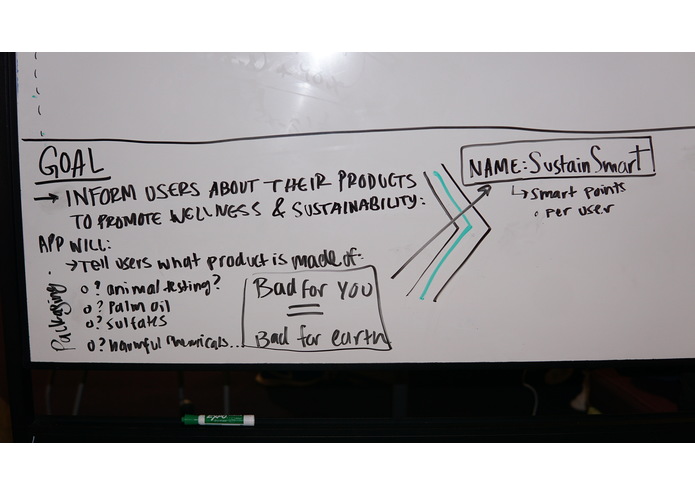 GOAL
→ INFORM USERS ABOUT THEIR PRODUCTS
TO PROMOTE WELLNESS & SUSTAINABILITY:
APP WILL:
→ Tell users what product is made of:
o? animal testing?
o? palm oil
o? sulfates
o? harmful chemicals...
Packaging
Bad for you
=
Bad for earth
NAME: SustainSmart
↳ smart points
per user